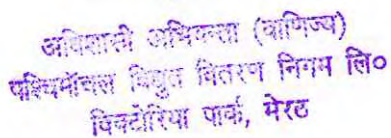 अधिशासी अभियन्ता (वाणिज्य)
पश्चिमांचल विद्युत वितरण निगम लि०
विक्टोरिया पार्क, मेरठ